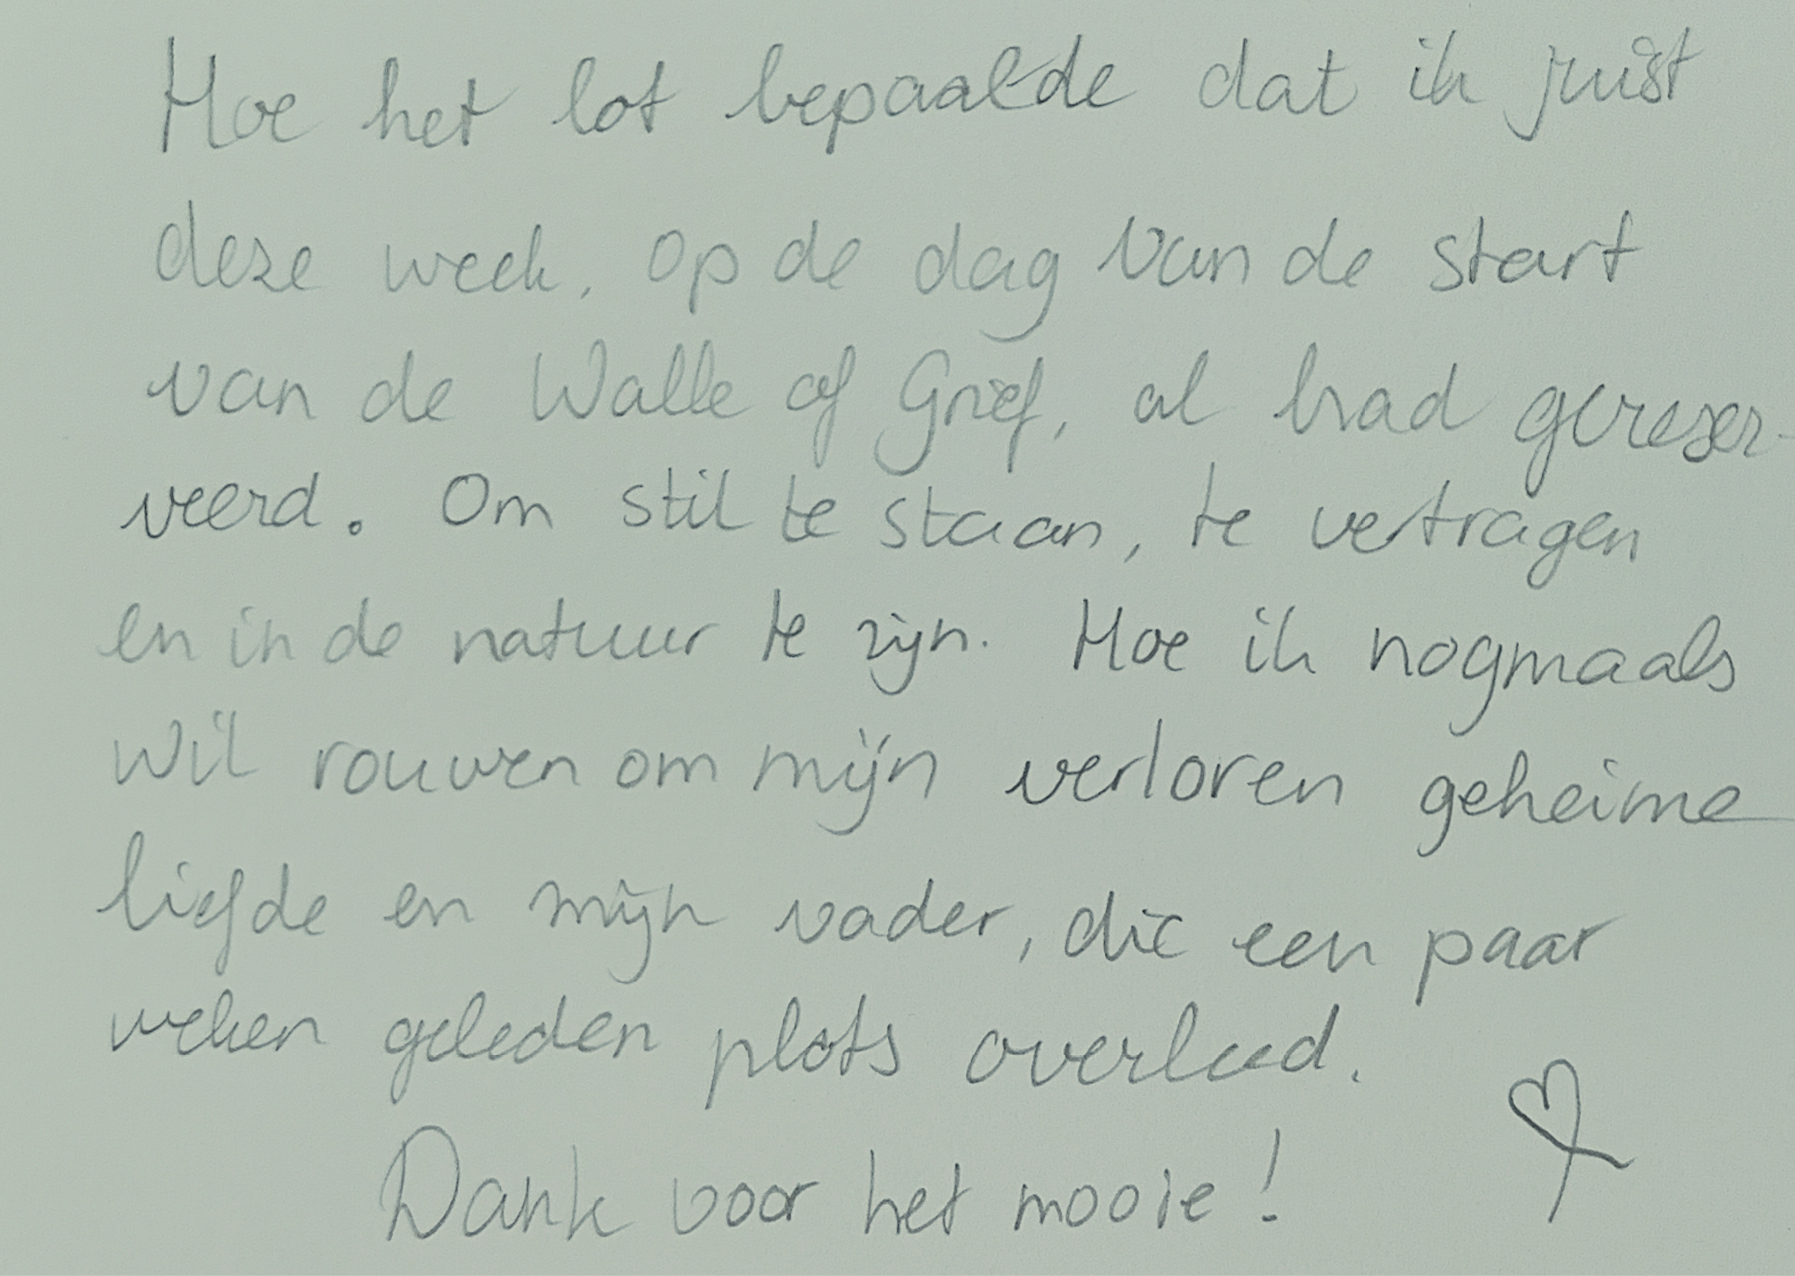 Hoe het lot bepaalde dat ik juist
deze week, op de dag van de start
van de Walle of Grief, al had gereser-
veerd. Om stil te staan, te vertragen
en in de natuur te zijn. Hoe ik nogmaals
wil rouwen om mijn verloren geheime
liefde en mijn vader, die een paar
weken geleden plots overleed.
Dank voor het mooie!